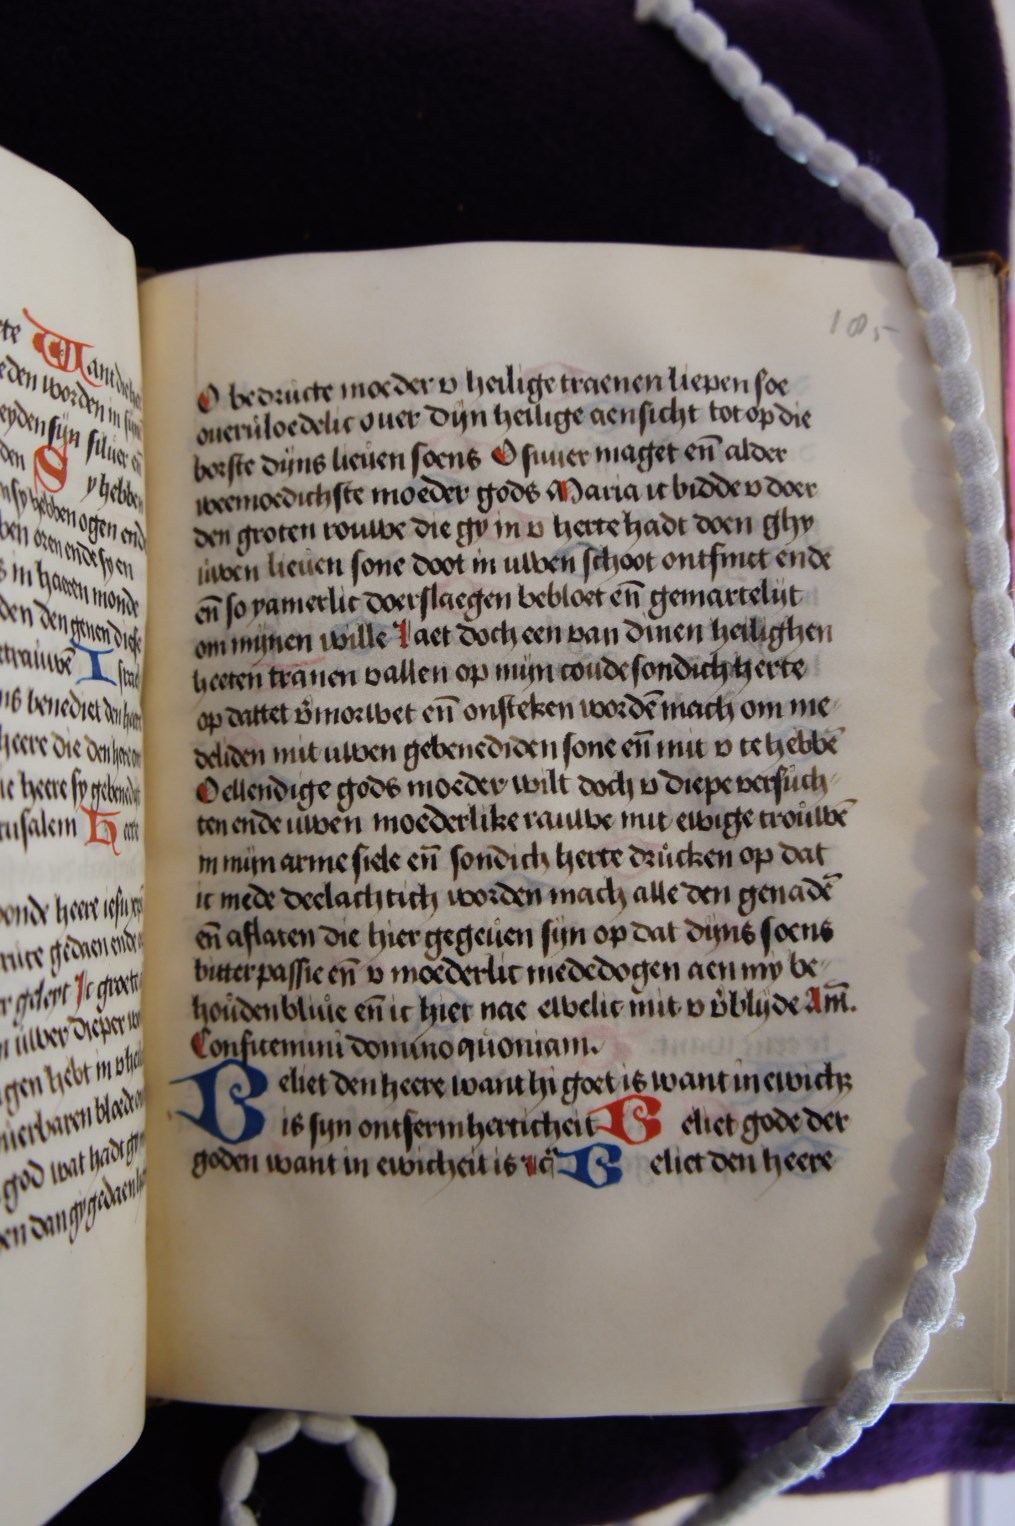 te Want die he
eden worden in sijn
eyden sijn siluer en̄
den Sy hebben
nsy hebben ogen end
ben oren ende sy en
s in haeren monde
den den genen die se
trauwē Isrl
ns benediet den heer
heere die den heren
ie heere sy gebenedijt
rusalem Herte
onde heere iesu xp̄s
ruce gedaen ende
r geleyt Ic groete
n uwer dieper
gen hebt in v heil
uierbaren bloede
god wat hadt gy
en dan gy gedaen
185
O bedructe moeder v heilige traenen liepen soe
ouerůloedelic ouer dijn heilige aensicht tot op die
borste dijns lieuen soens O suuer maget en̄ alder
weemoedichste moeder gods Maria ic bidde v doer
den groten rouwe die gy in v herte hadt doen ghy
uwen lieuen sone doot in uwen schoot ontfinct ende
en̄ so yamerlic doerslaegen bebloet en̄ gemartelijt
om mijnen wille Laet doch een van dinen heilighen
heeten tranen vallen op mijn coude sondich herte
op dattet v̓morwet en̄ onsteken wordē mach om me
deliden mit uwen gebenediden sone en̄ mit v te hebbē
O ellendige gods moeder wilt doch v diepe versůch
ten ende uwen moederlike rauwe mit ewige trouwē
in mijn arme siele en̄ sondich herte drůcken op dat
ic mede deelachtich worden mach alle den genadē
en̄ aflaten die hier gegeuen sijn op dat dijns soens
bitter passie en̄ v moederlic mededogen aen my be
houden bliue en̄ ic hier nae ewelic mit v v̓blijde Am̄.
Confitemini domino quoniam.
Beliet den heere want hi goet is want in ewich;
is sijn ontfermherticheit Beliet gode der
goden want in ewicheit is rc̄ Beliet den heere